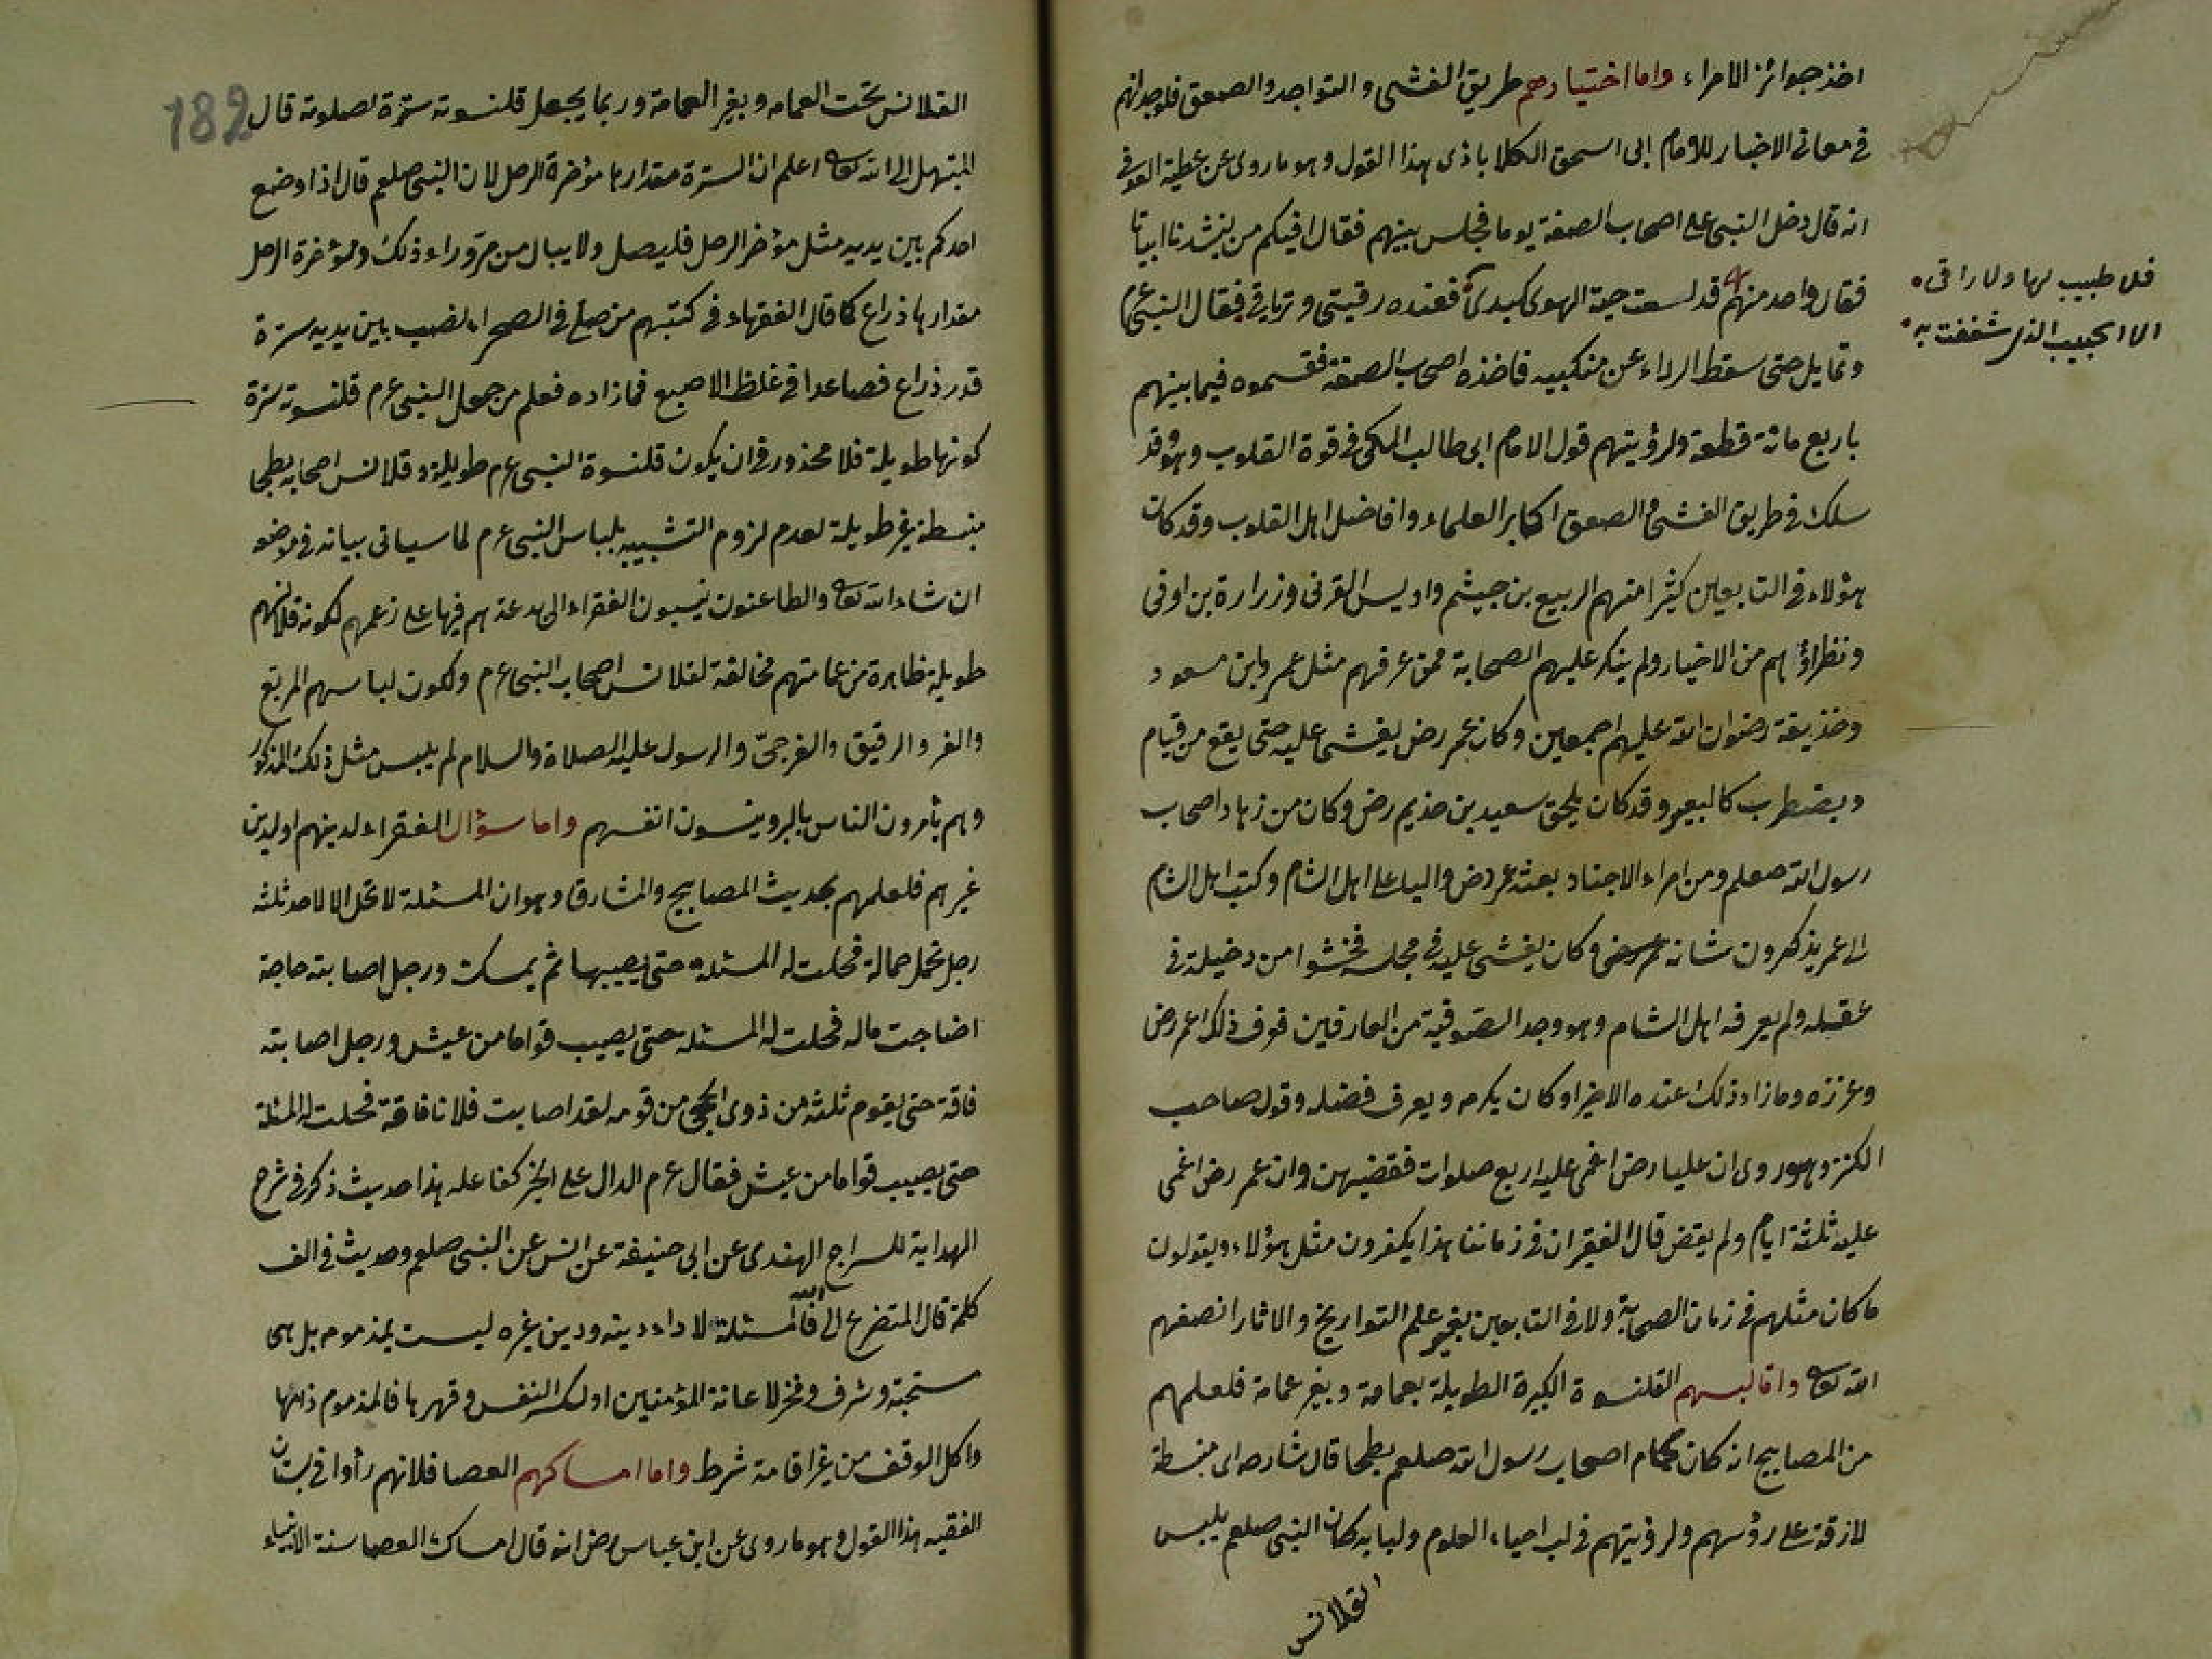 اخذ جوائز الامراء واما اختيارهم طريق الغشى والتواجد والصعق فلوجدانهم
فى معانى الاخبار للامام ابى اسحق الكلاباذى هذا القول وهو ماروى عن عطية العوفى
انه قال دخل النبى على اصحاب الصفة يوما فجلس بينهم فقال افيكم من ينشدنا ابياتا
فقال واحد منهم قد لسعت حية الهوى كبدى فعنده رقيتى وترياقى فقال النبى عم
فلا طبيب لها ولا راقى
الا الحبيب الذى شغفت به
وتمايل حتى سقط الرداء عن منكبيه فاخذه اصحاب الصفة فقسموه فيما بينهم
باربع مائة قطعة ولرؤيتهم قول الامام ابى طالب المكى فى قوة القلوب وهو قد
سلك فى طريق الغشى والصعق اكابر العلماء وافاضل اهل القلوب وقد كان
هؤلاء فى التابعين كثيرا منهم الربيع بن خيثم واويس القرنى وزرارة بن اوفى
ونظراؤهم من الاخيار ولم ينكر عليهم الصحابة ممن عرفهم مثل عمر وابن مسعود
وحذيفة رضوان الله عليهم اجمعين وكان عمر رض يغشى عليه حتى يقع من قيام
ويضطرب كالبعير وقد كان يلحق سعيد بن حذيم رض وكان من زهاد اصحاب
رسول الله صلعم ومن امراء الاجناد بعثه عمر رض واليا على اهل الشام وكتب اهل الشام
الى عمر يذكرون شانه وكان يغشى عليه فى مجلسه فخشوا من دخيلة فى
عقله ولم يعرفه اهل الشام وهو وجد الصوفية من العارفين فعرف ذلك عمر رض
وعززه وما زاد ذلك عنده الا خيرا وكان يكرمه ويعرف فضله وقول صاحب
الكنز وهو روى ان عليا رض اغمى عليه اربع صلوات فقضيهن وان عمر رض اغمى
عليه ثلثة ايام ولم يقض قال الفقير ان فى زماننا هذا يكفرون مثل هؤلاء ويقولون
ما كان مثلهم فى زمان الصحابة ولا فى التابعين بغير علم التواريخ والاثار انصفهم
الله تعالى واما لبسهم القلنسوة الكبيرة الطويلة بعمامة وبغير عمامة فلعلمهم
من المصابيح انه كان كمام اصحاب رسول الله صلعم بطحا قال شارحه اى منبسطة
لازقة على رؤسهم ولرؤيتهم فى لب احياء العلوم ولبابه كان النبى صلعم يلبس
القلانس
182
القلانس تحت العمامه وبغير العمامة وربما يجعل قلنسوته سترة لصلوته قال
المبتهل الى الله تعالى اعلم ان السترة مقدارها مؤخرة الرحل لان النبى صلعم قال اذا وضع
احدكم بين يديه مثل مؤخر الرحل فليصل ولا يبال من مر وراء ذلك ومؤخرة الرحل
مقدارها ذراع كما قال الفقهاء فى كتبهم من صلى فى الصحراء نصب بين يديه سترة
قدر ذراع فصاعدا فى غلظ الاصبع فما زاده فعلم من جعل النبى عم قلنسوته سترة
كونها طويلة فلا محذور فى ان يكون قلنسوة النبى عم طويلة وقلانس اصحابه بطحا
منبسطة غير طويلة لعدم لزوم التشبيه بلباس النبى عم لما سياتى بيانه فى موضعه
ان شاء الله تعالى والطاعنون ينسبون الفقراء الى بدعة هم فيها على زعمهم لكونه قلانسهم
طويلة ظاهرة من عمامتهم مخالفة لقلانس اصحاب النبى عم ولكون لباسهم المربع
والفرو الرقيق والفرجى والرسول عليه الصلاة والسلام لم يلبس مثل ذلك المذكور
وهم يأمرون الناس بالبر وينسون انفسهم واما سؤال الفقراء لدينهم اولدين
غيرهم فلعلمهم بحديث المصابيح والمشارق وهو ان المسئلة لا تحل الا لاحد ثلثه
رجل تحمل حمالة فحلت له المسئلة حتى يصيبها ثم يمسك ورجل اصابته حاجة
اضاجت ماله فحلت له المسئلة حتى يصيب قواما من عيش ورجل اصابته
فاقة حتى يقوم ثلثه من ذوى الحجى من قومه لقد اصابت فلانا فاقة فحلت له المسئلة
حتى يصيب قواما من عيش فقال عم الدال على الخير كفاعله هذا حديث ذكر فى شرح
الهداية للسراج الهندى عن ابى حنيفة عن انس عن النبى صلعم وحديث فى الف
كلمة قال المتضرع الى الله فالمسئلة لاداء دينه ودين غيره ليست بمذموم بل هى
مستحبة وشرف وفخر لاعانة المؤمنين او لكسر النفس وقهرها فالمذموم ذلها
واكل الوقف من غير اقامة شرط واما امساكهم العصا فلانهم رأوا فى بستان
الفقيه هذا القول وهو ما روى عن ابن عباس رض انه قال امساك العصا سنة الانبياء